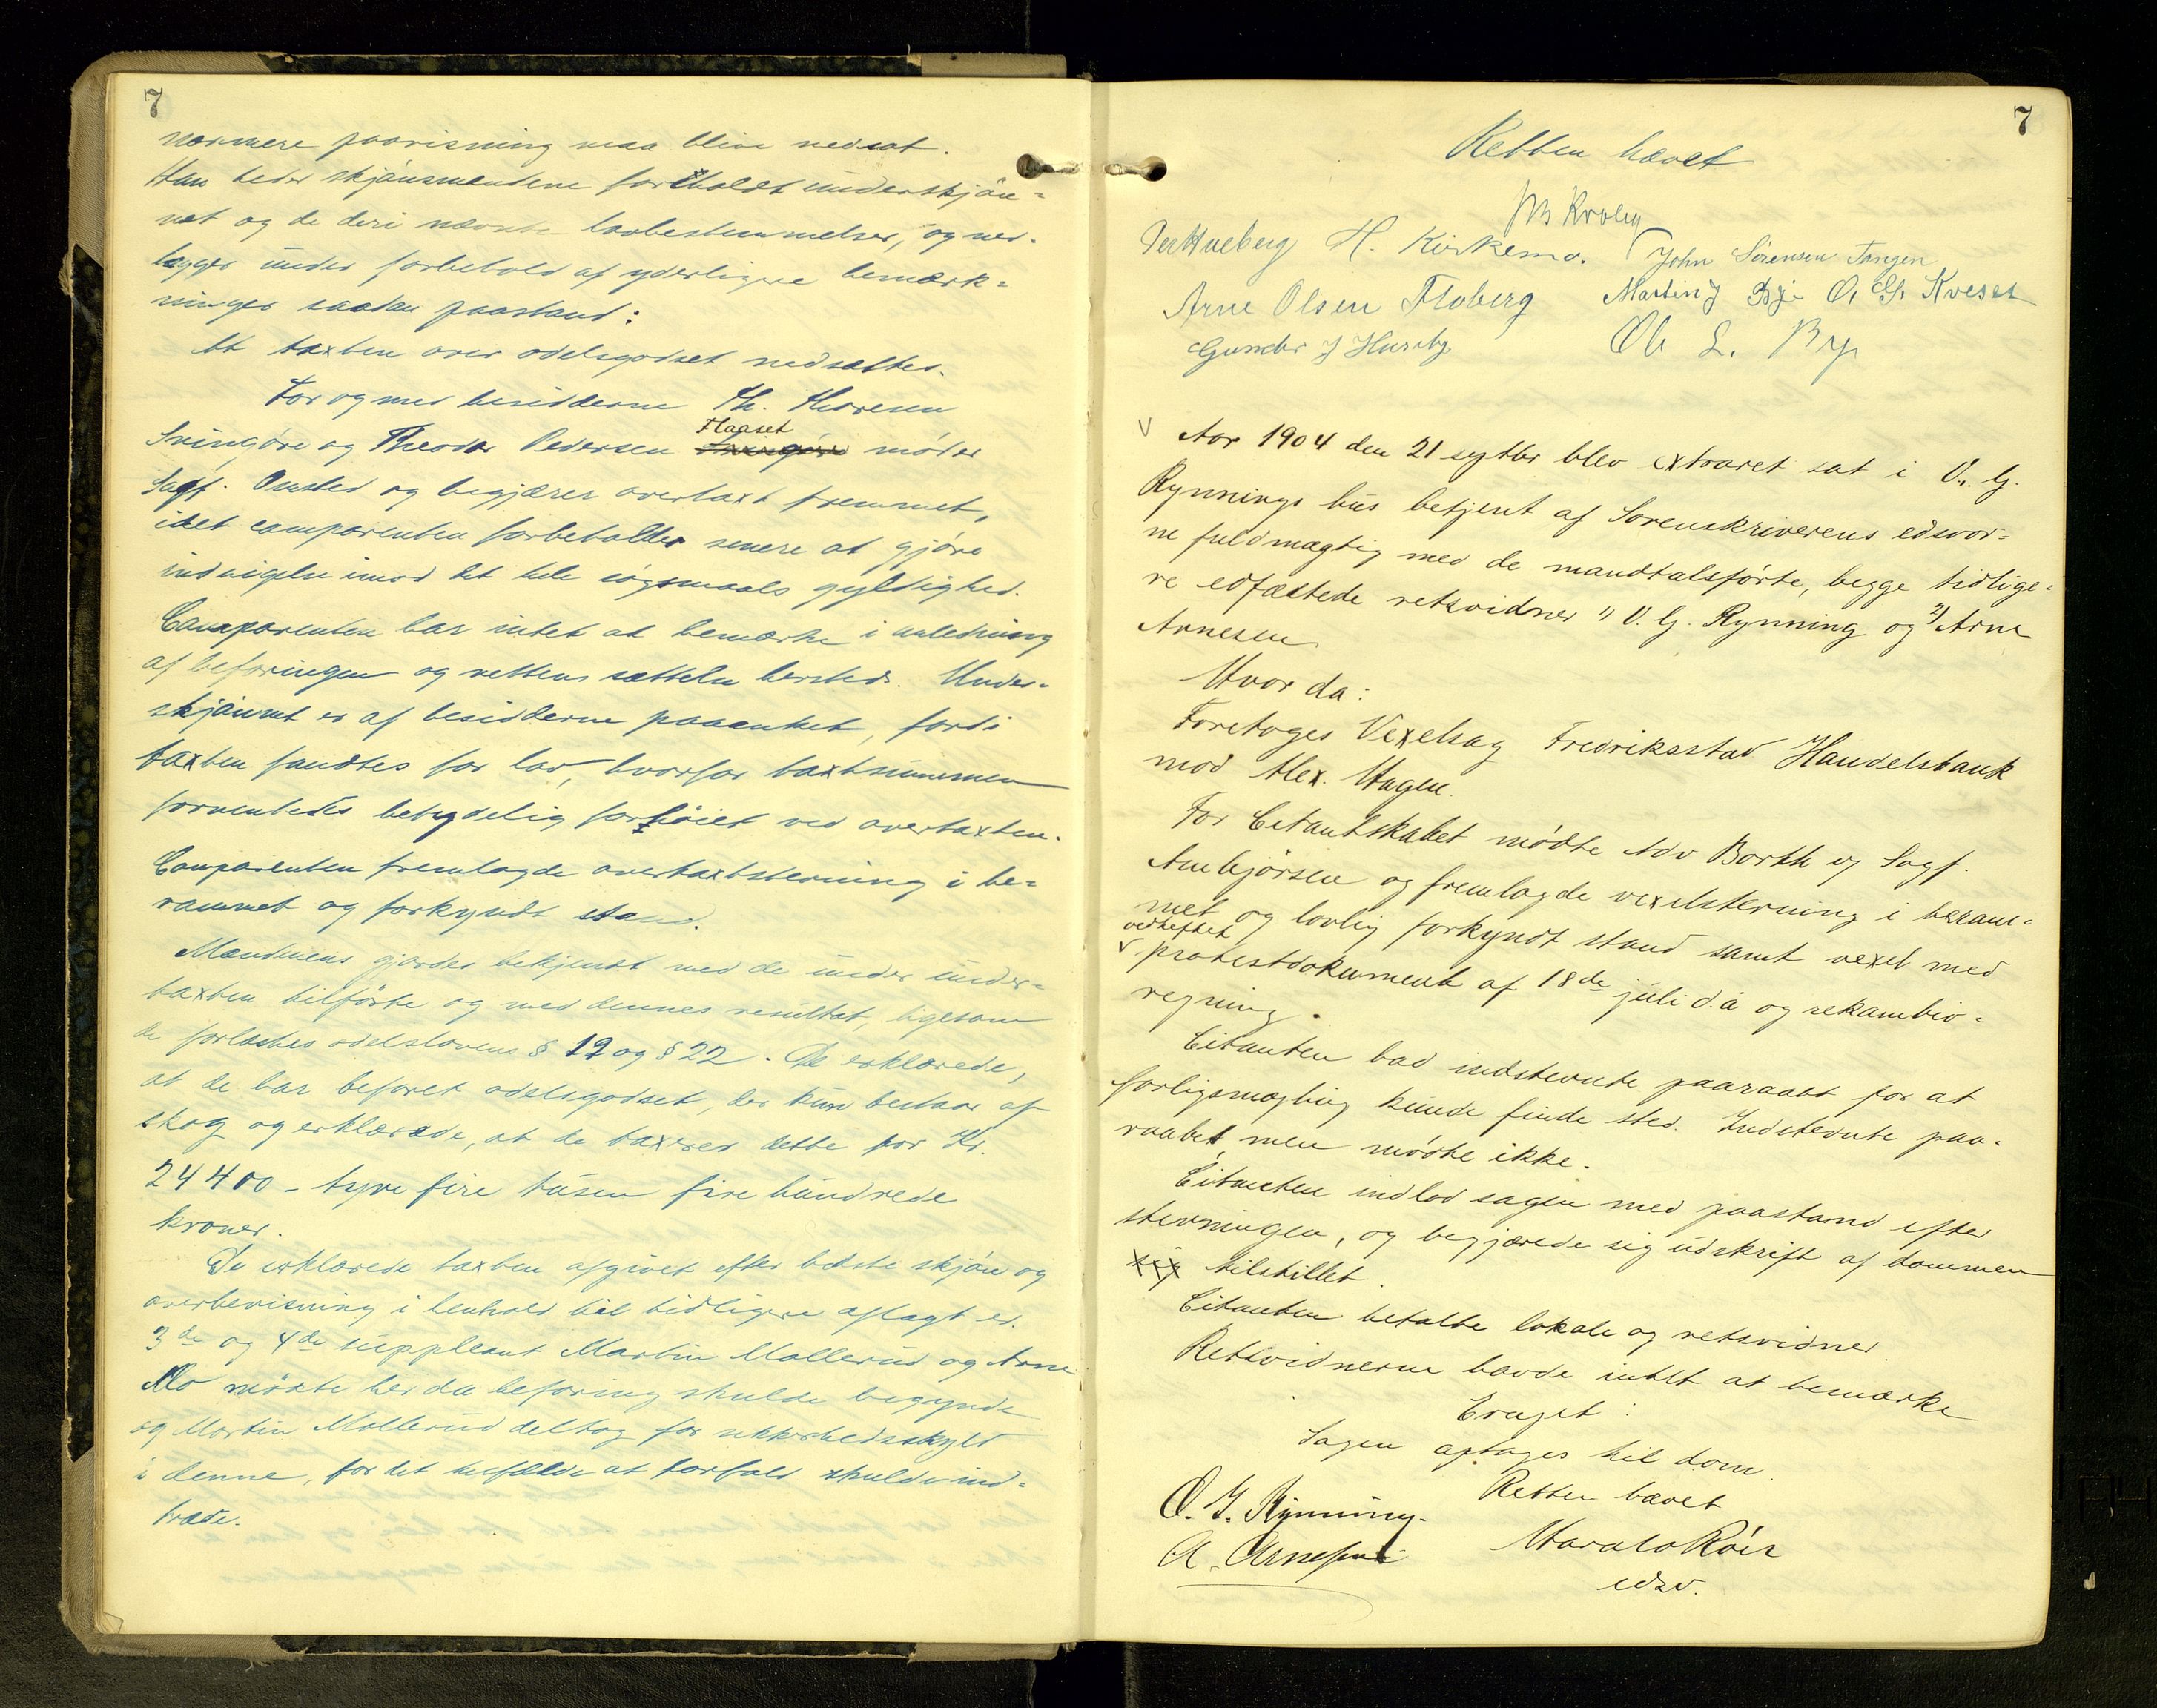 7
nærmere paavisning maa blive nedsat.
Han beder skjønsmændene forholdt underskjøn-
net og de deri nævnte lovbestemmelser, og ned-
lægger under forbehold af yderligere bemærk-
ninger saadan paastand:
At taxten over odelsgodset nedsættes.
For og med besidderne Th. Thoresen
Svingøre og Theodor Pedersen Flaaset møder
Sagf. Onsted og begjærer overtaxt fremmet,
idet comparenten forbeholder senere at gjøre
indsigelse imod det hele søgsmaals gyldighed.
Comparenten har intet at bemærke i anledning
af befaringen og rettens sættelse hersteds. Under-
skjønnet er af besidderne paaanket, fordi
taxten fandtes for lav, hvorfor taxtsummen
forventedes betydelig forhøiet ved overtaxten.
Comparenten fremlagde overtaxtstevning i be-
rammet og forkyndt stand.
Mændenens gjordes bekjendt med de under under-
taxten tilførte og med dennes resultat, ligesom
de forlæstes odelslovens § 19 og § 22. De erklærede,
at de har befaret odelsgodset, der kun bestaar af
skog og erklærede, at de taxerer dette for Kr.
24400 - tyve fire tusen fire hundrede
kroner.
De erklærede taxten afgivet efter bedste skjøn og
overbevisning i henhold til tidligere aflagt ed.
3de og 4de suppleant Martin Mollerud og Arne
Mo mødte her da befaring skulde begynde
og Martin Mollerud deltog for sikkerhedsskyld
i denne, for det tilfælde at forfald skulde ind-
træde.
7
Retten hævet
Per Hueberg H. Kirkemo. John Sørensen Tangen
Arne Olsen Floberg Martin J Bye O. G. Kveset
Gunder J Huseby Ole L. By
Aar 1904 den 21 septbr blev extraret sat i O. G.
Rynnings hus betjent af Sorenskriverens edsvor-
ne fuldmægtig med de mandtalsførte, begge tidlige-
re edfæstede retsvidner 1) O. G. Rynning og 2) Arne
Arnesen
Hvor da:
Foretoges Vexelsag Fredriksstad Handelsbank
mod Alex. Hagen.
For Citantskabet mødte Adv Barth og Sagf.
Ambjørsen og fremlagde vexelstevning i beram-
met og lovlig forkyndt stand samt vexel med
vedheftet
protestdokument af 18de juli d.å og rekambio-
regning.
Citanten bad indstevnte paaraabt for at
forligsmægling kunde finde sted. Indstevnte paa-
raabt, men mødte ikke.
Citanten indlod sagen med paastand efter
stevningen, og begjærede sig udskrift af dommen
sig tilstillet.
Citanten betalte lokale og retsvidner
Retsvidnerne havde intet at bemærke
Eragtet:
Sagen optages til dom.
Retten hævet
O. G. Rynning.
A. Arnesen
Harald Röer
edsv.